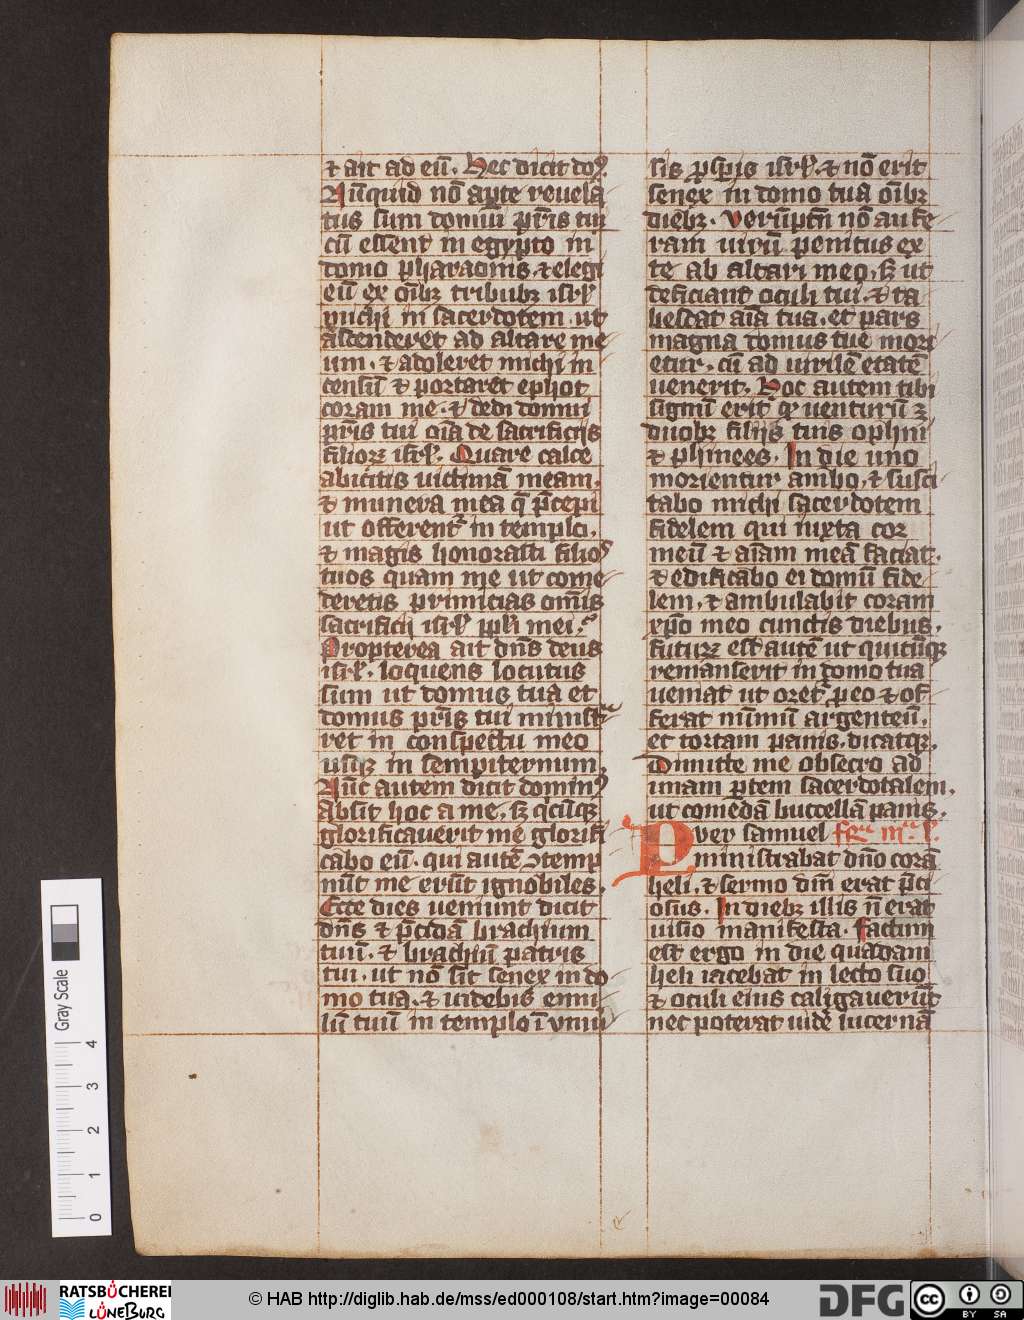 ⁊ ait ad eū. Hec dicit doꝰ.
Nūquid nō aꝑte reuela
tus sum domui pr̄is tui
cū essent in egypto in
domo pharaonis. ⁊ elegi
eū ex oīb⁊ tribub⁊ isrl̓
michi in sacerdotem. ut
ascenderet ad altare me
um. ⁊ adoleret michi in
censū ⁊ portaret ephot
coram me. ⁊ dedi domui
pr̄is tui oīa de sacrificijs
filioꝝ isrl̓. Quare calce
abicitis uictimā meam.
⁊ munera mea q̄ p̄cepi
ut offerent᷑ in templo.
⁊ magis honorasti filioꝰ
tuos quam me ut come
deretis primicias om̄is
sacrificii isrl̓ ppl̓i mei.
Propterea ait dn̄s deus
isrl̓. loquens locutus
sum ut domus tua et
domus pr̄is tui minist
ret in conspectu meo
usqꝫ in sempiternum.
Nūc autem dicit dominꝰ
Absit hoc a me. sꝫ qͥcūqꝫ
glorificauerit me glorifi
cabo eū. qui autē ꝯtemp
nūt me erūt ignobiles.
Ecce dies ueniunt dicit
dn̄s ⁊ p̄cidā brachium
tuū. ⁊ brachiū patris
tui. ut nō sit senex in do
mo tua. ⁊ uidebis emu
lū tuū in templo ī vniū
sis ꝓsꝑis isrl̓. ⁊ nō erit
senex in domo tua oīb⁊
dieb⁊. Verūptn̄ nō aufe
ram uirū penitus ex
te ab altari meo. sꝫ ut
deficiant oculi tui. ⁊ ta
bescat aīa tua. et pars
magna domus tue mori
etur. cū ad uirilē etatē
uenerit. Hoc autem tibi
signū erit qͦ uenturū ē
duob⁊ filijs tuis ophni
⁊ phinees. In die uno
morientur ambo. ⁊ susci
tabo michi sacerdotem
fidelem qui iuxta cor
meū ⁊ aīam meā faciat.
⁊ edificabo ei domū fide
lem. ⁊ ambulabit coram
xp̄o meo cunctis diebus.
futuꝝ est autē ut quicūqꝫ
remanserit in domo tua
ueniat ut oret ꝓ eo ⁊ of
ferat nūmū argenteū.
et tortam panis. dicatqꝫ.
Dimitte me obsecro ad
unam ꝑtem sacerdotalem.
ut comedā buccellā panis.
Pver samuel
ministrabat dn̄o corā
heli. ⁊ sermo dn̄i erat p̄ci
osus. In dieb⁊ illis n̄ erat
uisio manifesta. factum
est ergo in die quadam
heli iacebat in lecto suo
⁊ oculi eius caligauerūt
nec poterat uidē lucernā
Gray Scale
4
3
2
1
0
RATSBÜCHEREI
LÜNEBURG
© HAB http://diglib.hab.de/mss/ed000108/start.htm?image=00084
DFG
cc
BY SA